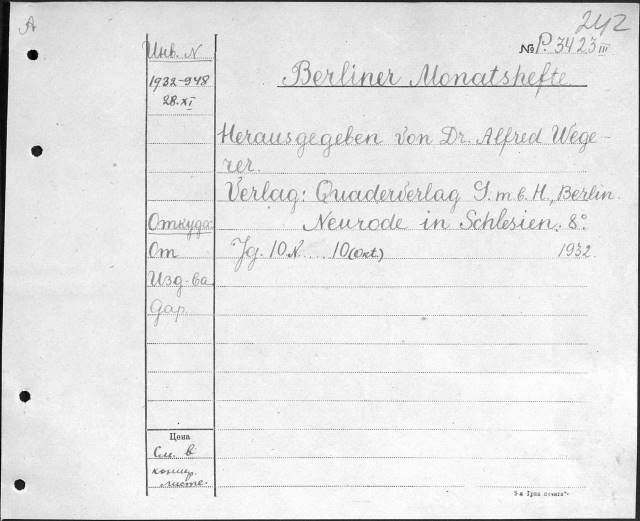 A
242
Инв. N
№ P. 3423 III
1932-948
28.XI
Berliner Monatshefte
Herausgegeben von Dr. Alfred Wege-
rer.
Verlag: Quaderverlag G.m.b.H., Berlin.
Откуда:
Neurode in Schlesien. 8º
От
Jg. 10 N.... 10 (Okt.)
1932.
Изд-ва
дар.
Цена
См. в
листе.